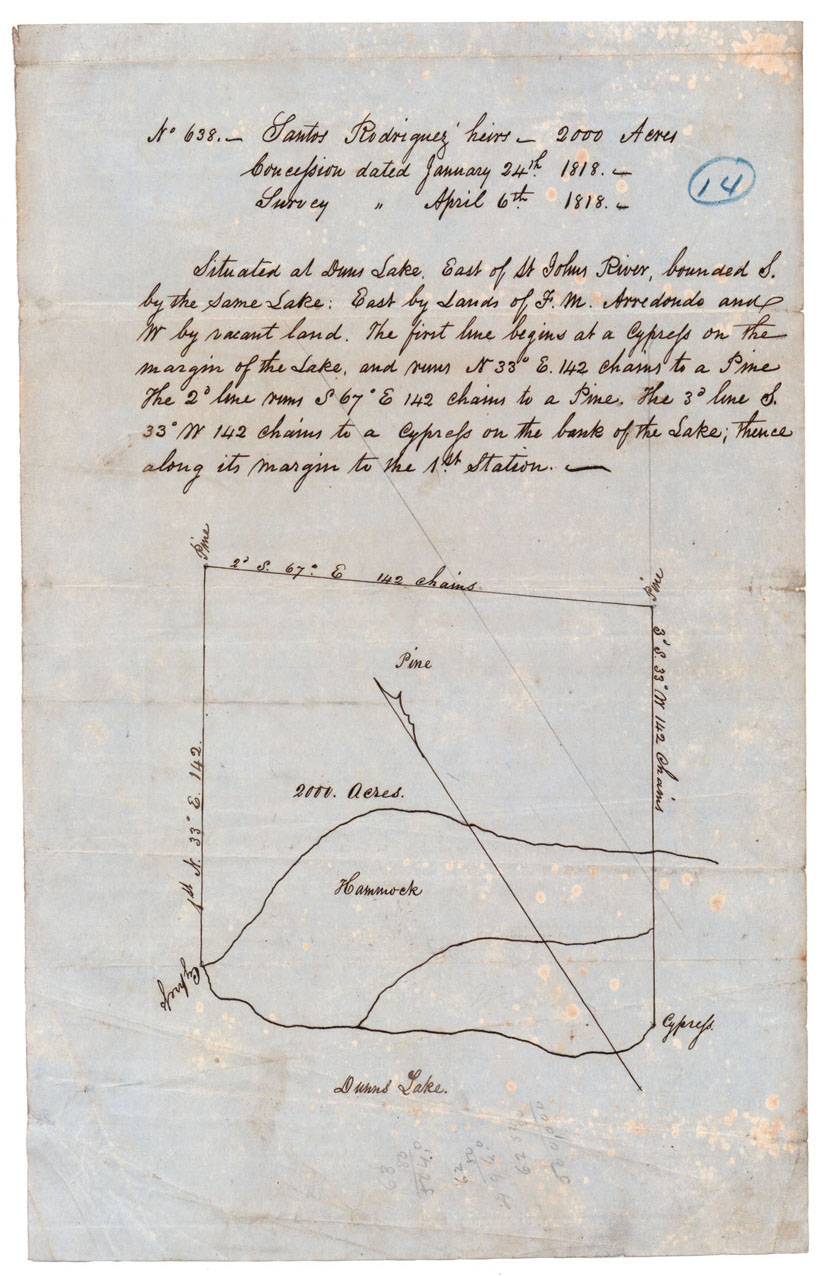 No 638. — Santos Rodriguez' heirs — 2000 Acres
Concession dated January 24th 1818. —
Survey " April 6th 1818. —
14
Situated at Duns Lake, East of St Johns River, bounded S.
by the same Lake: East by Lands of F. M. Arredondo and
W by vacant land. The first line begins at a Cypress on the
margin of the Lake, and runs N 33° E. 142 chains to a Pine
The 2d line runs S 67° E 142 chains to a Pine. The 3d line S.
33° W 142 chains to a Cypress on the bank of the Lake; thence
along its margin to the 1st Station. —
Pine
2d S. 67° E 142 chains.
Pine
Pine
3d S. 33° W 142 chains
1st N. 33° E. 142.
2000. Acres.
Hammock
Cypress
Cypress.
Dunns Lake.